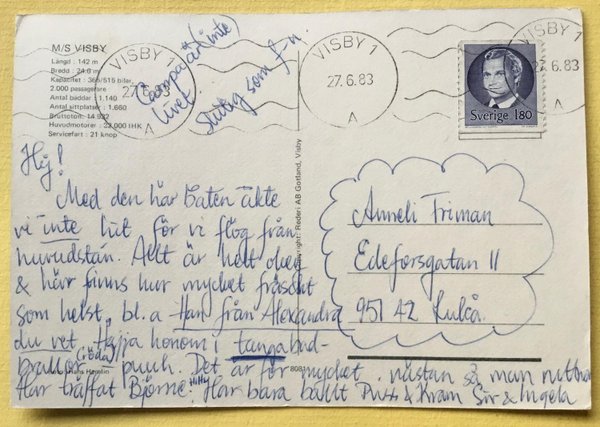 M/S VISBY
Längd : 142 m
Bredd : 24,0 m
Kapacitet : 365/515 bilar,
2.000 passagerare
Antal bäddar : 1.140
Antal sittplatser : 1.660
Bruttoton : 14.932
Huvudmotorer : 33.000 IHK
Servicefart : 21 knop
VISBY 1
27.6.83
A
livet
slutig som f-n
VISBY 1
27.6.83
A
VISBY 1
27.6.83
A
Sverige 180
Hej!
Med den här båten åkte
vi inte hit för vi flög från
huvudstán. Allt är helt
& här finns hur mycket fräscht
som helst, bl.a Han från Alexandra
du vet, honom i tangabad-
brallor (röda) puuh. Det är för mycket, nästan så man
Har träffat Björne. Har bara ballt Puss & Kram Siv & Ingela
Copyright: Rederi AB Gotland, Visby
8081
Anneli Friman
Edeforsgatan 11
951 42 Luleå